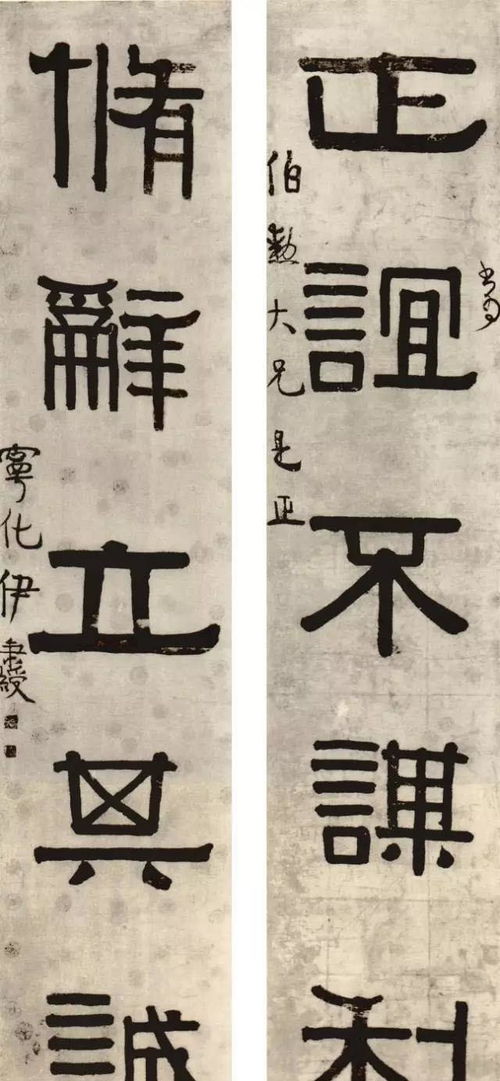 正誼不謀利
伯勳大兄是正
脩辭立其誠
寧化伊秉綬